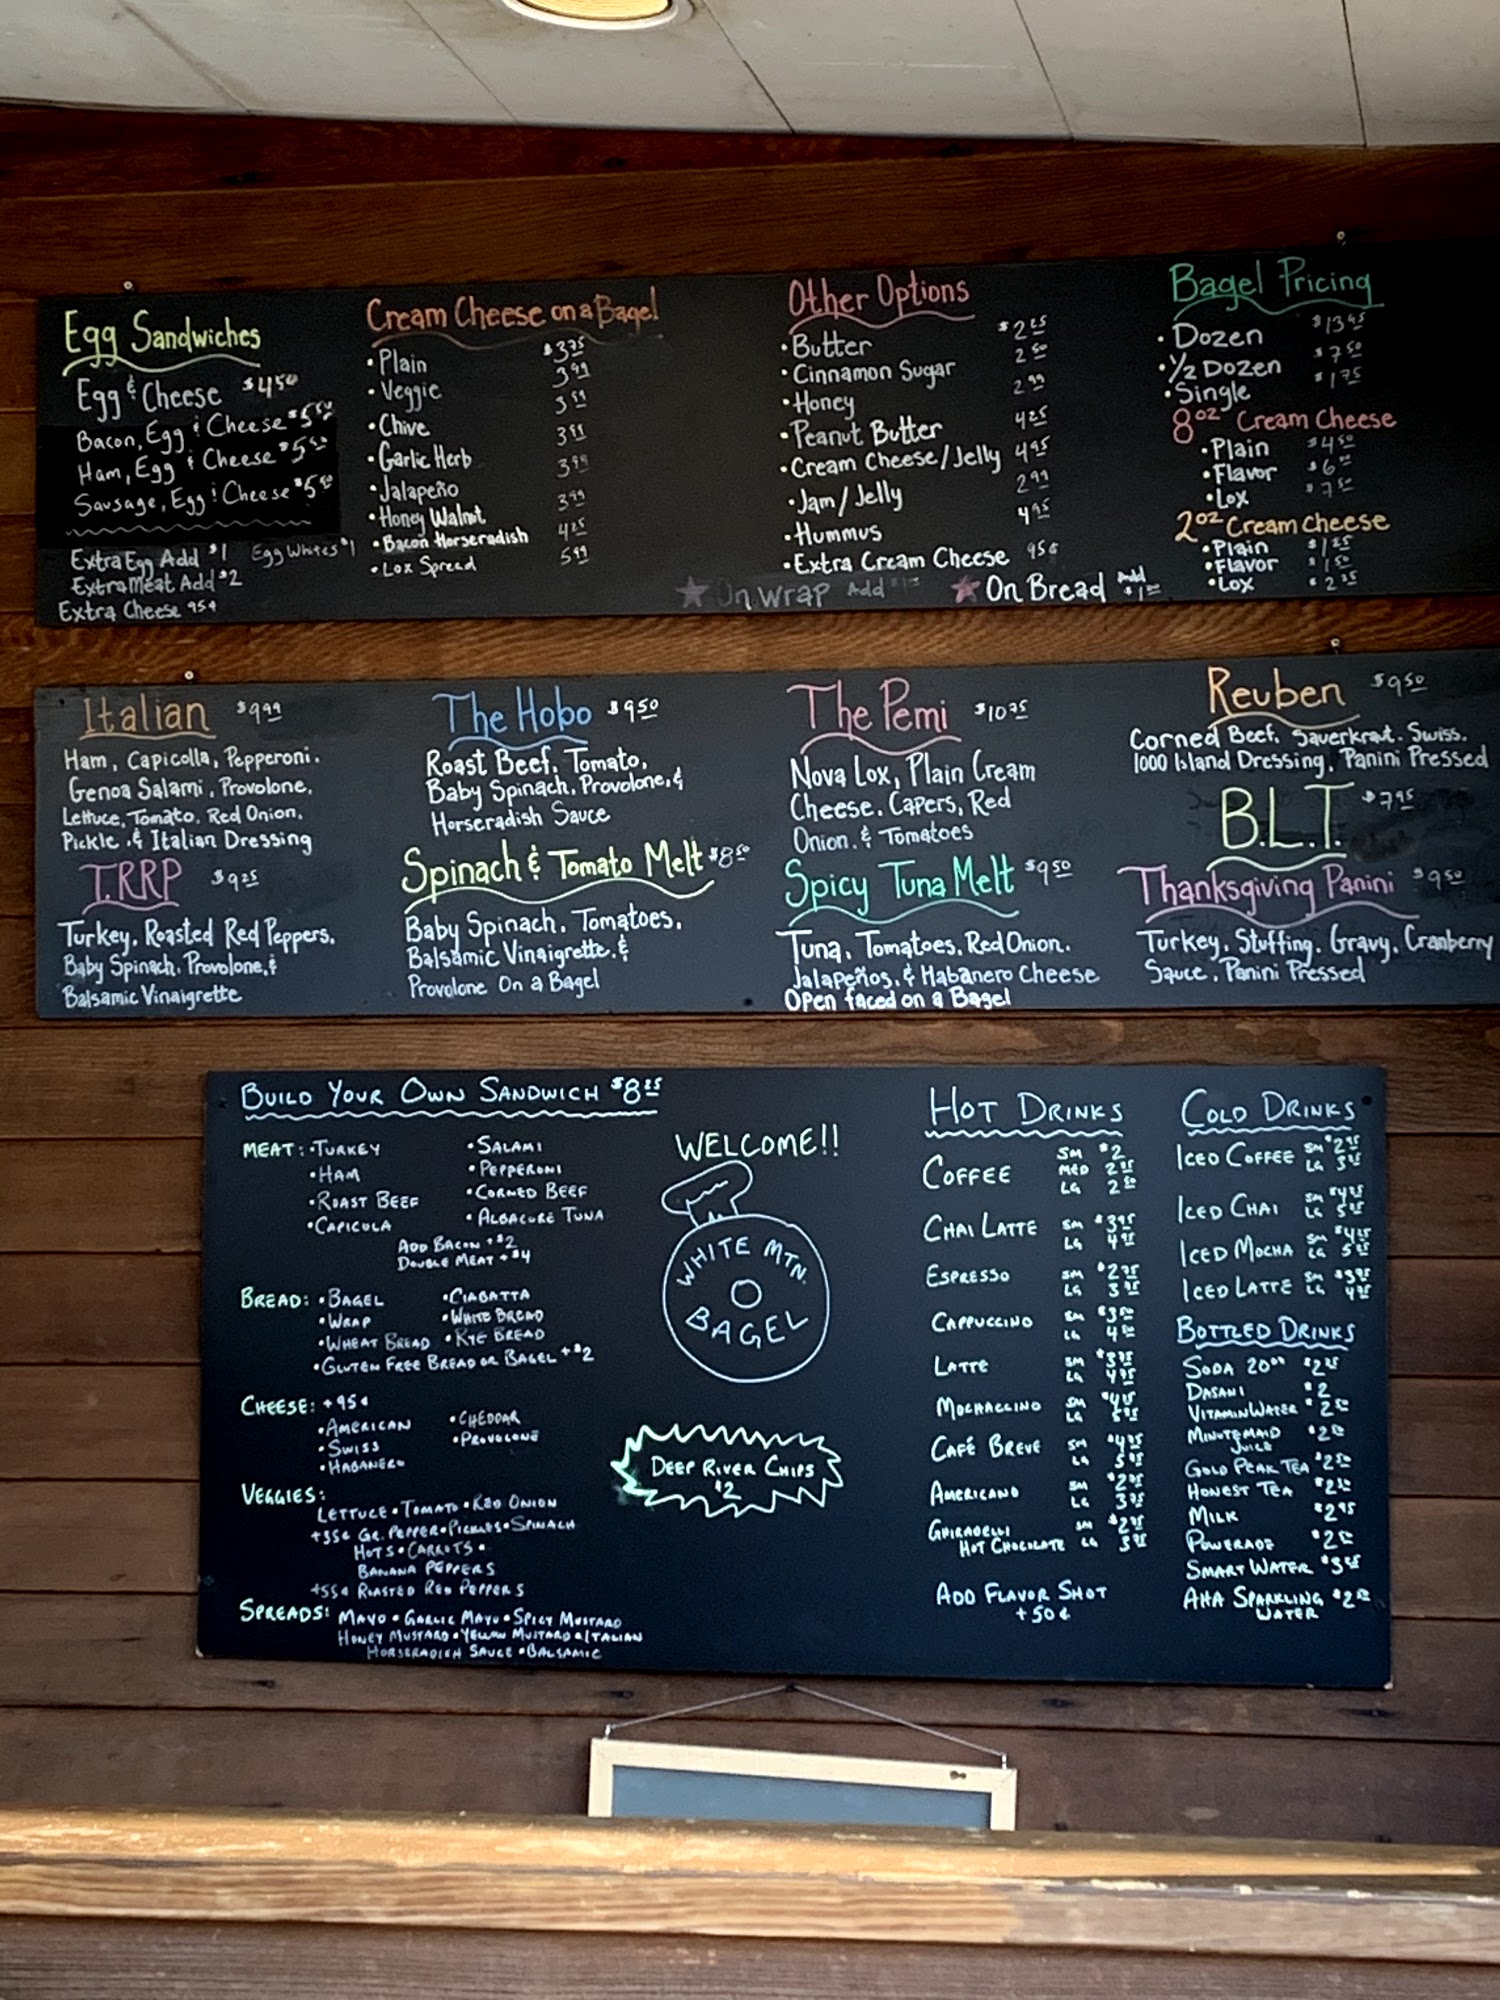 Egg Sandwiches
Egg & Cheese $4.50
Bacon, Egg & Cheese $5.50
Ham, Egg & Cheese $5.50
Sausage, Egg & Cheese $5.50
Extra Egg Add $1 Egg Whites $1
Extra Meat Add $2
Extra Cheese 95¢
Cream Cheese on a Bagel
•Plain $3.75
•Veggie 3.99
•Chive 3.99
•Garlic Herb 3.99
•Jalapeño 3.99
•Honey Walnut 3.99
•Bacon Horseradish 4.25
•Lox Spread 5.99
Other Options
•Butter $2.25
•Cinnamon Sugar 2.50
•Honey 2.99
•Peanut Butter 4.25
•Cream Cheese/Jelly 4.95
•Jam/Jelly 2.99
•Hummus 4.95
•Extra Cream Cheese 95¢
On Wrap Add
On Bread Add $1.00
Bagel Pricing
•Dozen $13.45
•1/2 Dozen $7.50
•Single $1.75
8oz Cream Cheese
•Plain $4.50
•Flavor $6
•Lox $7.50
2oz Cream Cheese
•Plain $1.25
•Flavor $1.50
•Lox $2.25
Italian $9.99
Ham, Capicolla, Pepperoni,
Genoa Salami, Provolone,
Lettuce, Tomato, Red Onion,
Pickle, & Italian Dressing
T.RRP $9.25
Turkey, Roasted Red Peppers,
Baby Spinach, Provolone, &
Balsamic Vinaigrette
The Hobo $9.50
Roast Beef, Tomato,
Baby Spinach, Provolone, &
Horseradish Sauce
Spinach & Tomato Melt $8.50
Baby Spinach, Tomatoes,
Balsamic Vinaigrette, &
Provolone On a Bagel
The Pemi $10.75
Nova Lox, Plain Cream
Cheese, Capers, Red
Onion, & Tomatoes
Spicy Tuna Melt $9.50
Tuna, Tomatoes, Red Onion,
Jalapeños, & Habanero Cheese
Open faced on a Bagel
Reuben $9.50
Corned Beef, Sauerkraut, Swiss,
1000 Island Dressing, Panini Pressed
B.L.T. $7.95
Thanksgiving Panini $9.50
Turkey, Stuffing, Gravy, Cranberry
Sauce, Panini Pressed
BUILD YOUR OWN SANDWICH $8.25
MEAT: •TURKEY •SALAMI
•HAM •PEPPERONI
•ROAST BEEF •CORNED BEEF
•CAPICULA •ALBACORE TUNA
ADD BACON +$2
DOUBLE MEAT +$4
BREAD: •BAGEL •CIABATTA
•WRAP •WHITE BREAD
•WHEAT BREAD •RYE BREAD
•GLUTEN FREE BREAD OR BAGEL +$2
CHEESE: +95¢
•AMERICAN •CHEDDAR
•SWISS •PROVOLONE
•HABANERO
VEGGIES:
LETTUCE•TOMATO•RED ONION
+35¢ GR. PEPPER•PICKLES•SPINACH
HOTS•CARROTS•
BANANA PEPPERS
+55¢ ROASTED RED PEPPERS
SPREADS: MAYO•GARLIC MAYO•SPICY MUSTARD
HONEY MUSTARD•YELLOW MUSTARD•ITALIAN
HORSERADISH SAUCE•BALSAMIC
WELCOME!!
WHITE MTN.
BAGEL
DEEP RIVER CHIPS
$2
HOT DRINKS
COFFEE SM $2
MED 2.25
LG 2.50
CHAI LATTE SM $3.95
LG 4.95
ESPRESSO SM $2.75
LG 3.75
CAPPUCCINO SM $3.50
LG 4.50
LATTE SM $3.75
LG 4.75
MOCHACCINO SM
LG
CAFÉ BREVE SM
LG
AMERICANO SM
LG
GHIRADELLI SM
HOT CHOCOLATE LG
ADD FLAVOR SHOT
+50¢
COLD DRINKS
ICED COFFEE SM
LG
ICED CHAI SM $4.25
LG 5.25
ICED MOCHA SM $4.25
LG
ICED LATTE SM
LG
BOTTLED DRINKS
SODA 20oz $2.25
DASANI $2
VITAMINWATER $2.50
MINUTEMAID $2.50
JUICE
GOLD PEAK TEA $2.50
HONEST TEA $2.50
MILK $2.95
POWERADE $2.50
SMART WATER
AHA SPARKLING $2.50
WATER